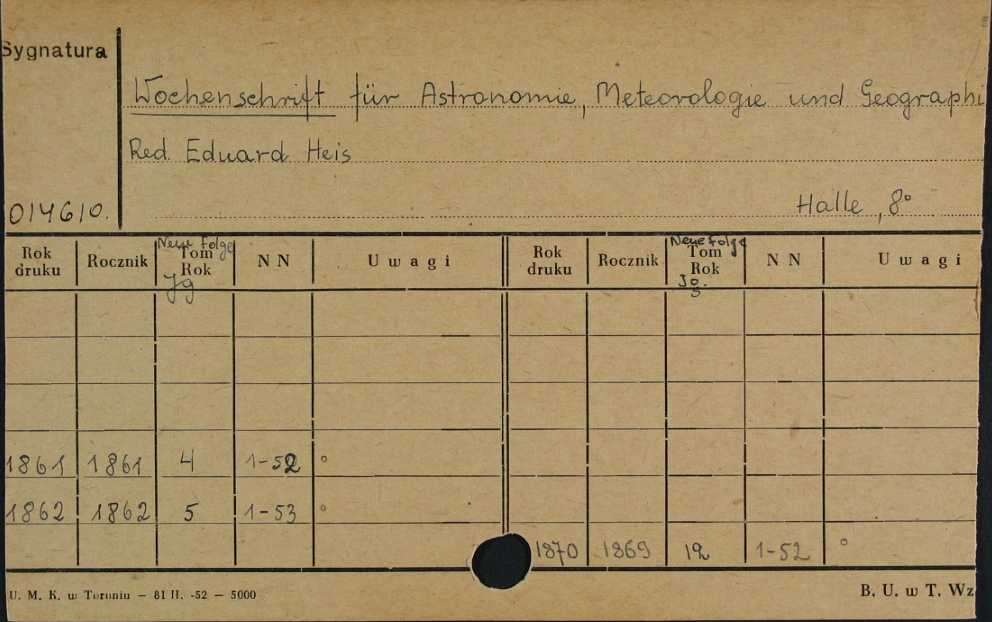 Sygnatura
Wochenschrift für Astronomie, Meteorologie und Geographi
Red. Eduard Heis
014610.
Halle, 8°
Rok druku Rocznik Neue Folge Tom Rok Jg NN Uwagi Rok druku Rocznik Neue Folge Tom Rok Jg. NN Uwagi
1861 1861 4 1-52 °
1862 1862 5 1-53 °
1870 1869 12 1-52 °
U. M. K. w Toruniu — 81 II. -52 — 5000
B. U. w T. Wz